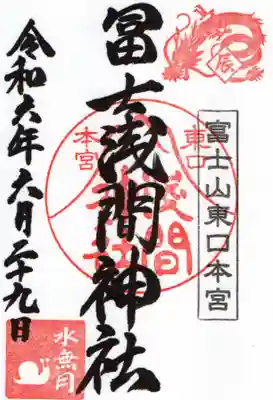 辰
富士山東口本宮
冨士浅間神社
東口
本宮
浅間
令和六年六月二十九日
水無月